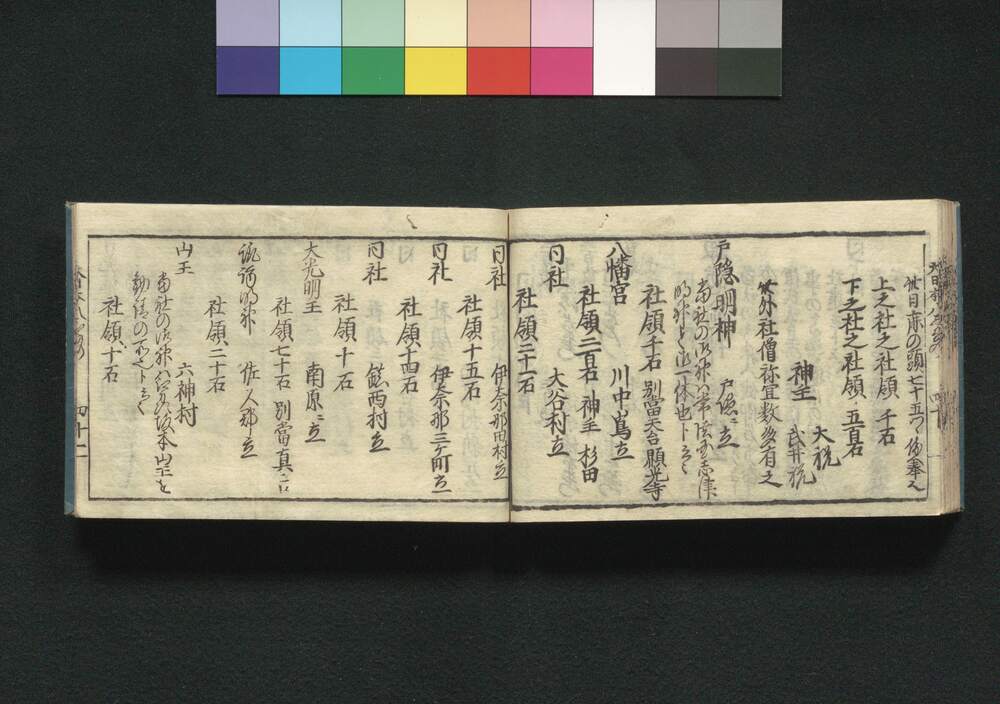 此日鹿の頭七十五つゝ備奉ス
上之社之社領 千石
下之社之社領 五百石
神主 大祝
武井祝
此外社僧祢宜数多有之
戸隠明神 戸隠ニ立
當社の御神ハ常陸国志津
明神と御一体也ト云々
社領千石 別當天台顕光寺
八幡宮 川中嶌立
社領二百石 神主 杉田
同社 大谷村立
社領二十一石
同社 伊奈那田村立
社領十五石
同社 伊奈那三ケ町立
社領十四石
同社 飯西村立
社領十石
大光明王 南原ニ立
社領七十石 別當真言
諏訪明神 佐久郡立
社領二十石
山王 六神村
當社の御神ハ江州坂本山王を
勧請の所也ト云々
社領十石
四十二